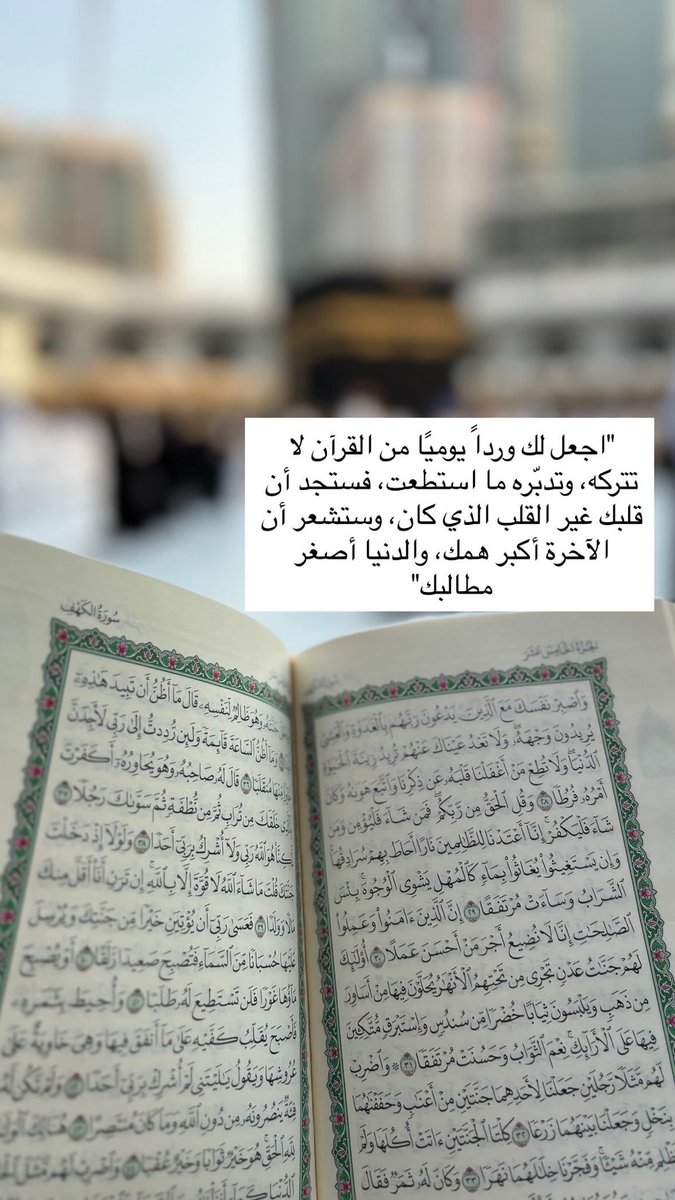 "اجعل لك ورداً يوميًا من القرآن لا
تتركه، وتدبّره ما استطعت، فستجد أن
قلبك غير القلب الذي كان، وستشعر أن
الآخرة أكبر همك، والدنيا أصغر
مطالبك"
الجزء الخامس عشر
وَٱصْبِرْ نَفْسَكَ مَعَ ٱلَّذِينَ يَدْعُونَ رَبَّهُم بِٱلْغَدَوٰةِ وَٱلْعَشِيِّ
يُرِيدُونَ وَجْهَهُۥ ۖ وَلَا تَعْدُ عَيْنَاكَ عَنْهُمْ تُرِيدُ زِينَةَ ٱلْحَيَوٰةِ
ٱلدُّنْيَا ۖ وَلَا تُطِعْ مَنْ أَغْفَلْنَا قَلْبَهُۥ عَن ذِكْرِنَا وَٱتَّبَعَ هَوَىٰهُ وَكَانَ
أَمْرُهُۥ فُرُطًا ٢٨ وَقُلِ ٱلْحَقُّ مِن رَّبِّكُمْ ۖ فَمَن شَآءَ فَلْيُؤْمِن وَمَن
شَآءَ فَلْيَكْفُرْ ۚ إِنَّآ أَعْتَدْنَا لِلظَّـٰلِمِينَ نَارًا أَحَاطَ بِهِمْ سُرَادِقُهَا ۚ
وَإِن يَسْتَغِيثُوا۟ يُغَاثُوا۟ بِمَآءٍ كَٱلْمُهْلِ يَشْوِى ٱلْوُجُوهَ ۚ بِئْسَ
ٱلشَّرَابُ وَسَآءَتْ مُرْتَفَقًا ٢٩ إِنَّ ٱلَّذِينَ ءَامَنُوا۟ وَعَمِلُوا۟
ٱلصَّـٰلِحَـٰتِ إِنَّا لَا نُضِيعُ أَجْرَ مَنْ أَحْسَنَ عَمَلًا ٣٠ أُو۟لَـٰٓئِكَ
لَهُمْ جَنَّـٰتُ عَدْنٍ تَجْرِى مِن تَحْتِهِمُ ٱلْأَنْهَـٰرُ يُحَلَّوْنَ فِيهَا مِنْ أَسَاوِرَ
مِن ذَهَبٍ وَيَلْبَسُونَ ثِيَابًا خُضْرًا مِّن سُندُسٍ وَإِسْتَبْرَقٍ مُّتَّكِـِٔينَ
فِيهَا عَلَى ٱلْأَرَآئِكِ ۚ نِعْمَ ٱلثَّوَابُ وَحَسُنَتْ مُرْتَفَقًا ٣١ ۞ وَٱضْرِبْ
لَهُم مَّثَلًا رَّجُلَيْنِ جَعَلْنَا لِأَحَدِهِمَا جَنَّتَيْنِ مِنْ أَعْنَـٰبٍ وَحَفَفْنَـٰهُمَا
بِنَخْلٍ وَجَعَلْنَا بَيْنَهُمَا زَرْعًا ٣٢ كِلْتَا ٱلْجَنَّتَيْنِ ءَاتَتْ أُكُلَهَا وَلَمْ
تَظْلِم مِّنْهُ شَيْـًٔا ۚ وَفَجَّرْنَا خِلَـٰلَهُمَا نَهَرًا ٣٣ وَكَانَ لَهُۥ ثَمَرٌ فَقَالَ
سورة الكهف
جَنَّتَهُۥ وَهُوَ ظَالِمٌ لِّنَفْسِهِۦ قَالَ مَآ أَظُنُّ أَن تَبِيدَ هَـٰذِهِۦٓ
وَمَآ أَظُنُّ ٱلسَّاعَةَ قَآئِمَةً وَلَئِن رُّدِدتُّ إِلَىٰ رَبِّى لَأَجِدَنَّ
مِّنْهَا مُنقَلَبًا ٣٦ قَالَ لَهُۥ صَاحِبُهُۥ وَهُوَ يُحَاوِرُهُۥٓ أَكَفَرْتَ
خَلَقَكَ مِن تُرَابٍ ثُمَّ مِن نُّطْفَةٍ ثُمَّ سَوَّىٰكَ رَجُلًا ٣٧
لَّـٰكِنَّا۠ هُوَ ٱللَّهُ رَبِّى وَلَآ أُشْرِكُ بِرَبِّىٓ أَحَدًا ٣٨ وَلَوْلَآ إِذْ دَخَلْتَ
جَنَّتَكَ قُلْتَ مَا شَآءَ ٱللَّهُ لَا قُوَّةَ إِلَّا بِٱللَّهِ ۚ إِن تَرَنِ أَنَا۠ أَقَلَّ مِنكَ
مَالًا وَوَلَدًا ٣٩ فَعَسَىٰ رَبِّىٓ أَن يُؤْتِيَنِ خَيْرًا مِّن جَنَّتِكَ وَيُرْسِلَ
عَلَيْهَا حُسْبَانًا مِّنَ ٱلسَّمَآءِ فَتُصْبِحَ صَعِيدًا زَلَقًا ٤٠ أَوْ يُصْبِحَ
مَآؤُهَا غَوْرًا فَلَن تَسْتَطِيعَ لَهُۥ طَلَبًا ٤١ وَأُحِيطَ بِثَمَرِهِۦ
فَأَصْبَحَ يُقَلِّبُ كَفَّيْهِ عَلَىٰ مَآ أَنفَقَ فِيهَا وَهِىَ خَاوِيَةٌ عَلَىٰ
عُرُوشِهَا وَيَقُولُ يَـٰلَيْتَنِى لَمْ أُشْرِكْ بِرَبِّىٓ أَحَدًا ٤٢ وَلَمْ تَكُن لَّهُۥ
فِئَةٌ يَنصُرُونَهُۥ مِن دُونِ ٱللَّهِ وَمَا كَانَ مُنتَصِرًا ٤٣ هُنَالِكَ ٱلْوَلَـٰيَةُ
لِلَّهِ ٱلْحَقِّ ۚ هُوَ خَيْرٌ ثَوَابًا وَخَيْرٌ عُقْبًا ٤٤ وَٱضْرِبْ لَهُم مَّثَلَ